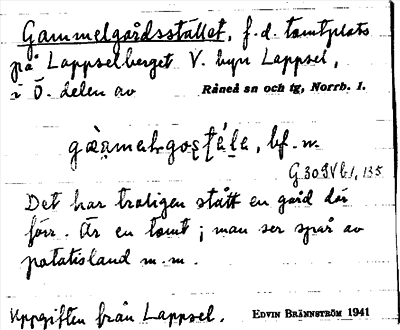 Gammelgårdsstället, f.d. tomtplats
på Lappselberget V. byn Lappsel,
i Ö. delen av Råneå sn och tg, Norrb. l.
bf. m.
Det har troligen stått en gård där
förr. Är en tomt; man ser spår av
potatisland m.m.
Uppgiften från Lappsel. EDVIN BRÄNNSTRÖM 1941